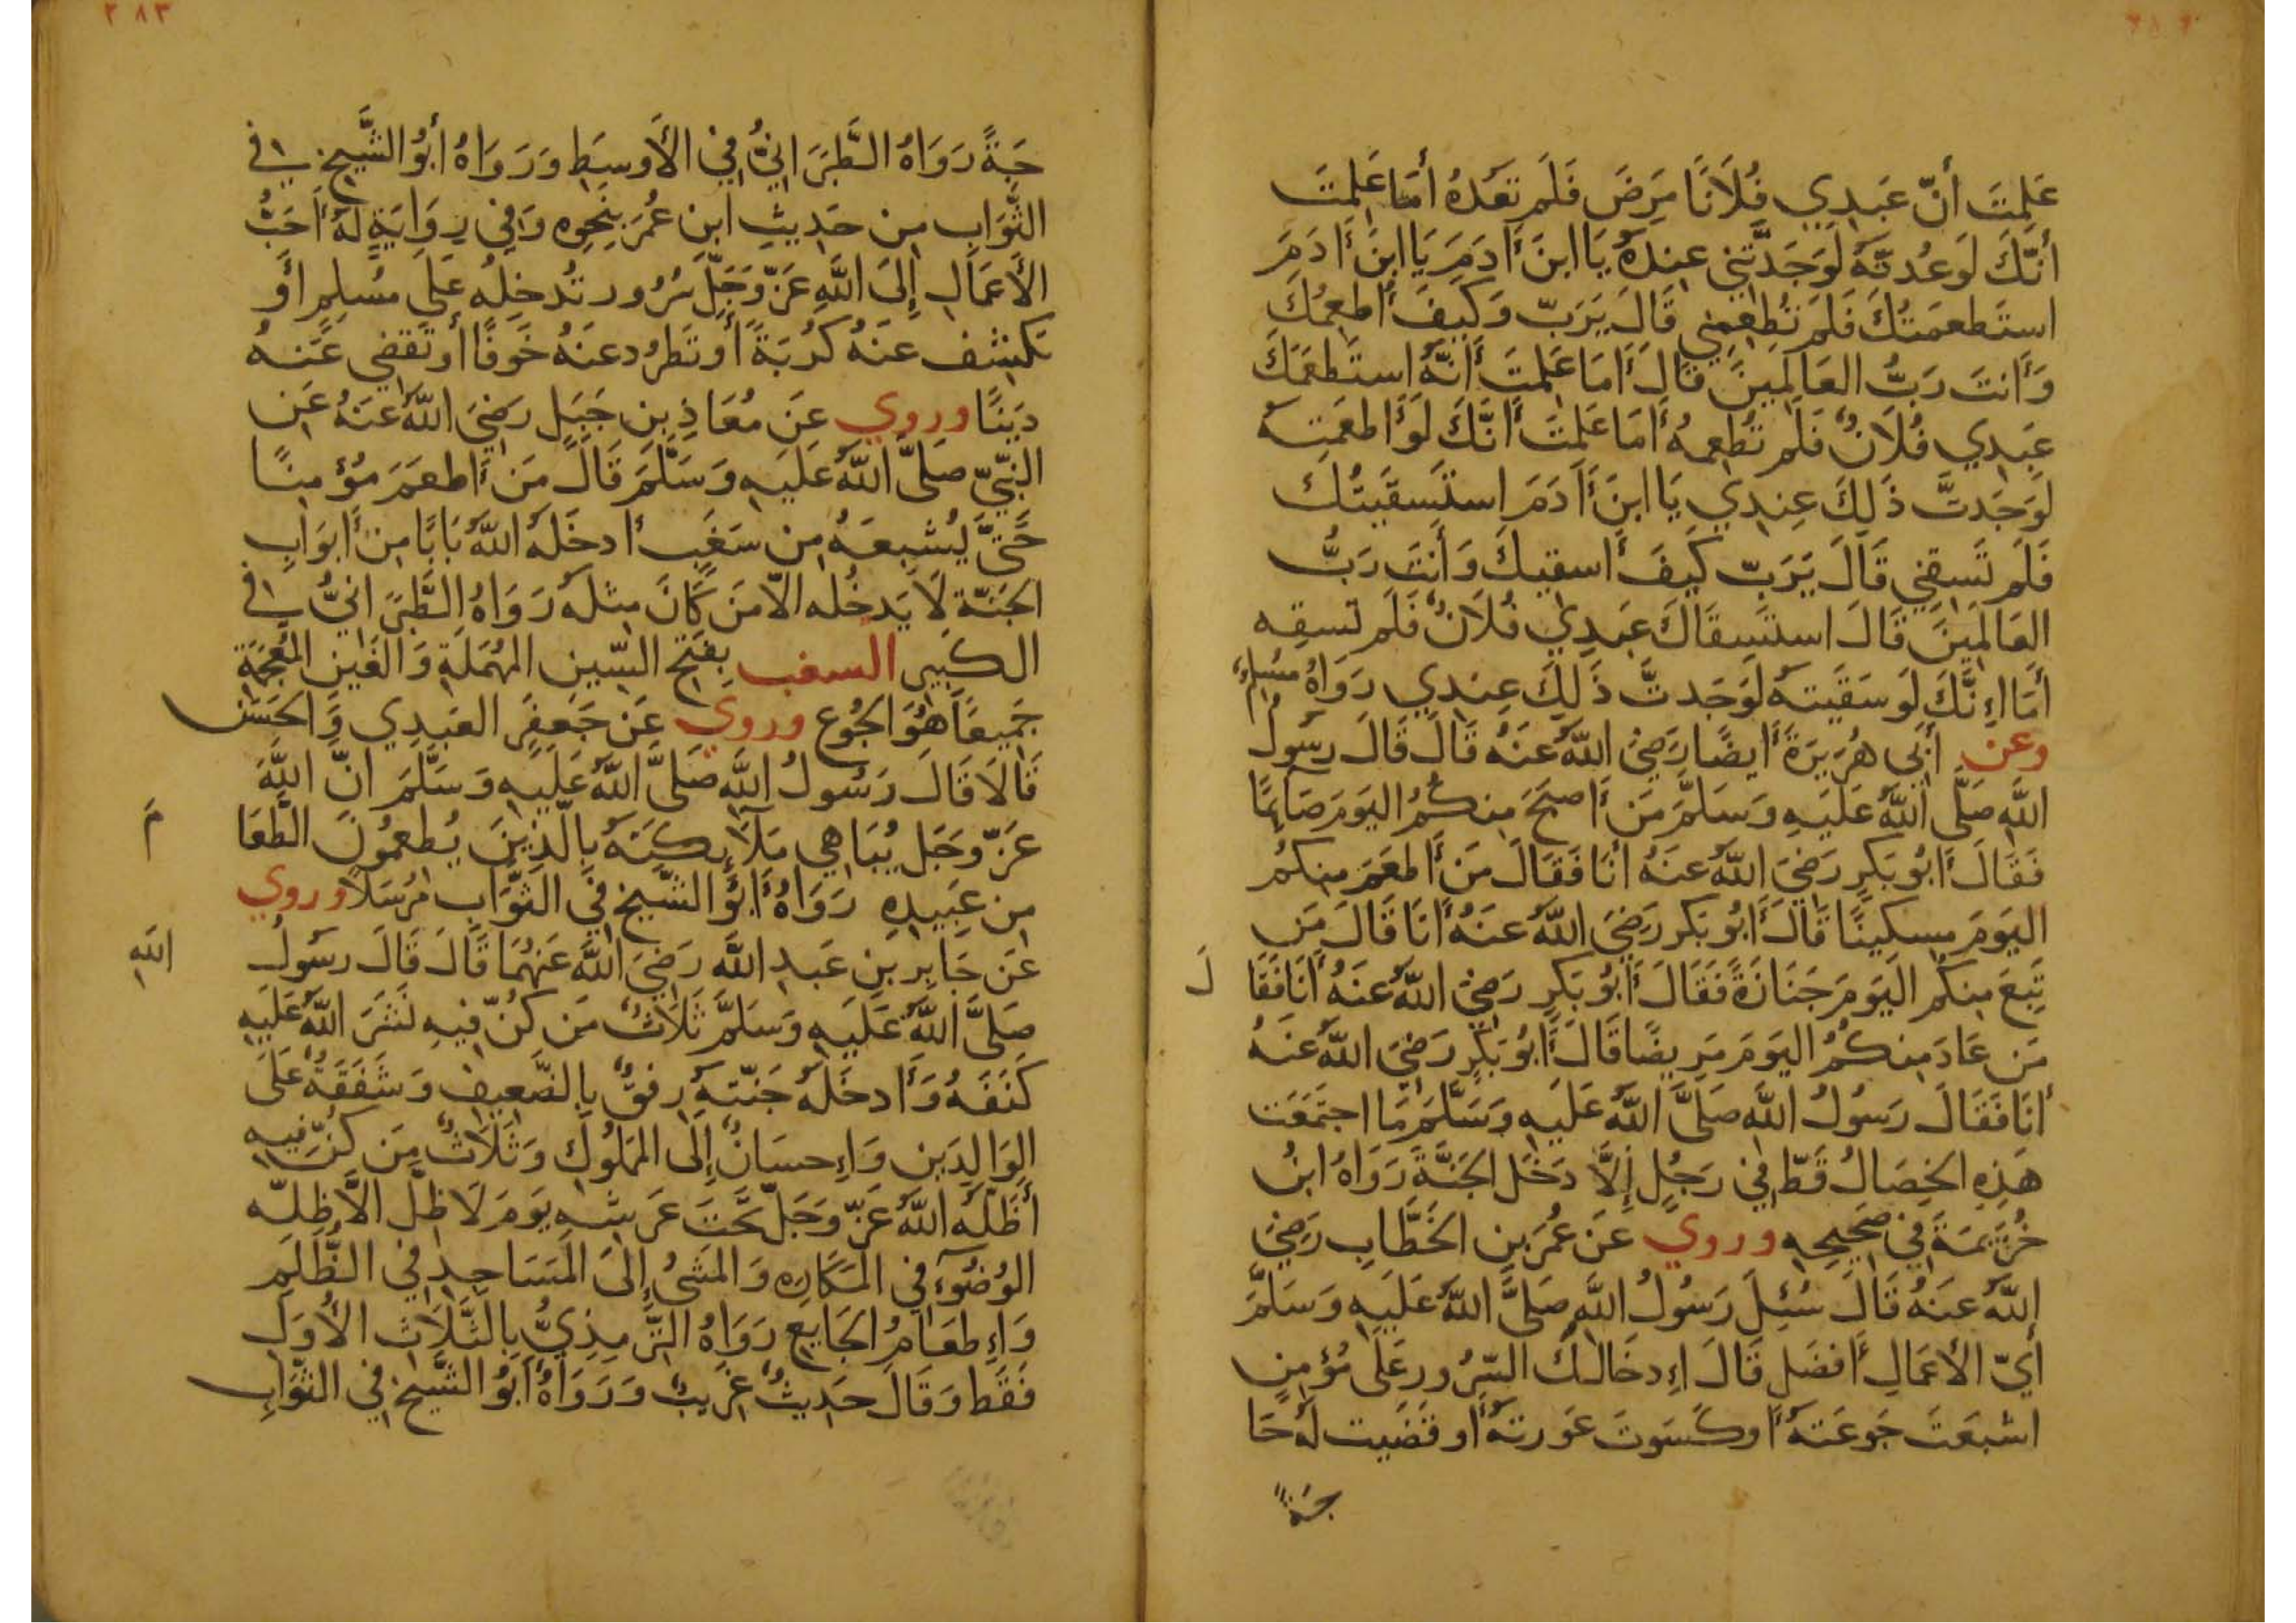 عَلِمتَ أَنّ عَبدِي فُلَانًا مَرِضَ فَلَم تَعُدهُ أَمَا عَلِمتَ
أَنَّكَ لَو عُدتَّهُ لَوَجَدتَّنِي عِندَهُ يَا ابنَ أَادَمَ يَا ابنَ أَادَمَ
استَطعَمتُكَ فَلَم تُطعِمنِي قَالَ يَرَبّ وَكَيفَ أُطعِمُكَ
وَأَنتَ رَبُّ العَالَمِينَ قَالَ أَمَا عَلِمتَ أَنَّهُ استَطعَمَكَ
عَبدِي فُلَانٌ فَلَم تُطعِمهُ أَمَا عَلِمتَ أَنَّكَ لَو أَطعَمتَهُ
لَوَجَدتَّ ذَلِكَ عِندِي يَا ابنَ أَادَمَ استَسقَيتُكَ
فَلَم تَسقِنِي قَالَ يَرَبّ كَيفَ أَسقِيكَ وَأَنتَ رَبُّ
العَالَمِينَ قَالَ استَسقَاكَ عَبدِي فُلَانٌ فَلَم تَسقِه
أَمَا إِنَّكَ لَو سَقَيتَهُ لَوَجَدتَّ ذَلِكَ عِندِي رَوَاهُ مُسلِمٌ
وعن أَبِي هُرَيرَةَ أَيضًا رَضِيَ اللّٰهُ عَنهُ قَالَ قَالَ رَسُولُ
اللّٰهِ صَلَّى اللّٰهُ عَلَيهِ وَسَلَّمَ مَن أَصبَحَ مِنكُمُ اليَومَ صَائِمًا
فَقَالَ أَبُو بَكرٍ رَضِيَ اللّٰهُ عَنهُ أَنَا فَقَالَ مَن أَطعَمَ مِنكُم
اليَومَ مِسكِينًا قَالَ أَبُو بَكرٍ رَضِيَ اللّٰهُ عَنهُ أَنَا قَالَ مَن
تَبِعَ مِنكُمُ اليَومَ جَنَازَةً فَقَالَ أَبُو بَكرٍ رَضِيَ اللّٰهُ عَنهُ أَنَا فَقَا لَ
مَن عَادَ مِنكُمُ اليَومَ مَرِيضًا قَالَ أَبُو بَكرٍ رَضِيَ اللّٰهُ عَنهُ
أَنَا فَقَالَ رَسُولُ اللّٰهِ صَلَّى اللّٰهُ عَلَيهِ وَسَلَّمَ مَا اجتَمَعَت
هَذِهِ الخِصَالُ قَطّ فِي رَجُلٍ إِلَّا دَخَلَ الجَنَّةَ رَوَاهُ ابنُ
خُزَيمَةَ فِي صَحِيحِهِ وروي عَن عُمَرَ بنِ الخَطَّابِ رَضِيَ
اللّٰهُ عَنهُ قَالَ سُئِلَ رَسُولُ اللّٰهِ صَلَّى اللّٰهُ عَلَيهِ وَسَلَّمَ
أَيّ الأَعمَالِ أَفضَل قَالَ إِدخَالُكَ السُّرُورَ عَلَى مُؤمِنٍ
اشبَعتَ جَوعَتَهُ أَو كَسَوتَ عَورَتَهُ أَو قَضَيتَ لَهُ حَا
جَةً
٢٨٣
جَةً رَوَاهُ الطَّبَرَانِيُّ فِي الأَوسَطِ وَرَوَاهُ أَبُو الشَّيخِ فِي
الثَّوَابِ مِن حَدِيثِ ابنِ عُمَرَ بِنَحوِهِ وَفِي رِوَايَةٍ لَهُ أَحَبُّ
الأَعمَالِ إِلَى اللّٰهِ عَزّ وَجَلّ سُرُور تُدخِلُه عَلَى مُسلِمٍ أَو
تَكشف عَنهُ كُربَةً أَو تَطرُد عَنهُ خَوفًا أَو تَقضِي عَنهُ
دَينًا وروي عَن مُعَاذِ بنِ جَبَلٍ رَضِيَ اللّٰهُ عَنهُ عَنِ
النَّبِيّ صَلَّى اللّٰهُ عَلَيهِ وَسَلَّمَ قَالَ مَن أَطعَمَ مُؤمِنًا
حَتَّى يُشبِعَهُ مِن سَغَبٍ أَدخَلَهُ اللّٰهُ بَابًا مِن أَبوَابِ
الجَنَّةِ لَا يَدخُلُه الّا مَن كَانَ مِثلَهُ رَوَاهُ الطَّبَرَانِيُّ فِي
الكَبِيرِ السغب بِفَتحِ السّينِ المُهمَلَةِ وَالغَينِ المُعجَمَةِ
جَمِيعًا هُوَ الجُوع وروي عَن جَعفَرٍ العَبدِي وَالحَسَن
قَالَا قَالَ رَسُولُ اللّٰهِ صَلَّى اللّٰهُ عَلَيهِ وَسَلَّمَ انّ اللّٰهَ
عَزّ وَجَل يُبَاهِي مَلَائِكَتَهُ بِالَّذِينَ يُطعِمُونَ الطَّعَا مَ
مِن عَبِيدِهِ رَوَاهُ أَبُو الشَّيخِ فِي الثَّوَابِ مُرسَلًا وروي
عَن جَابِرِ بنِ عَبدِ اللّٰهِ رَضِيَ اللّٰهُ عَنهُمَا قَالَ قَالَ رَسُولُ اللّٰهِ
صَلَّى اللّٰهُ عَلَيهِ وَسَلَّمَ ثَلَاثٌ مَن كُنّ فِيهِ نَشَرَ اللّٰهُ عَلَيهِ
كَنَفَهُ وَأَدخَلَهُ جَنّتَهُ رِفقٌ بِالضَّعِيفِ وَشَفَقَةٌ عَلَى
الوَالِدَينِ وَإِحسَانٌ إِلَى المَملُوكِ وَثَلَاثٌ مَن كُنّ فِيهِ
أَظَلَّهُ اللّٰهُ عَزّ وَجَلّ تَحتَ عَرشِهِ يَومَ لَا ظِلّ الّا ظِلّه
الوُضُوءُ فِي المَكَارِهِ وَالمَشيُ إِلَى المَسَاجِدِ فِي الظُّلَمِ
وَإِطعَامُ الجَايِعِ رَوَاهُ التِّرمِذِيُّ بِالثَّلَاثِ الأُوَلِ
فَقَط وَقَالَ حَدِيثٌ غَرِيبٌ وَرَوَاهُ أَبُو الشَّيخِ فِي الثَّوَابِ